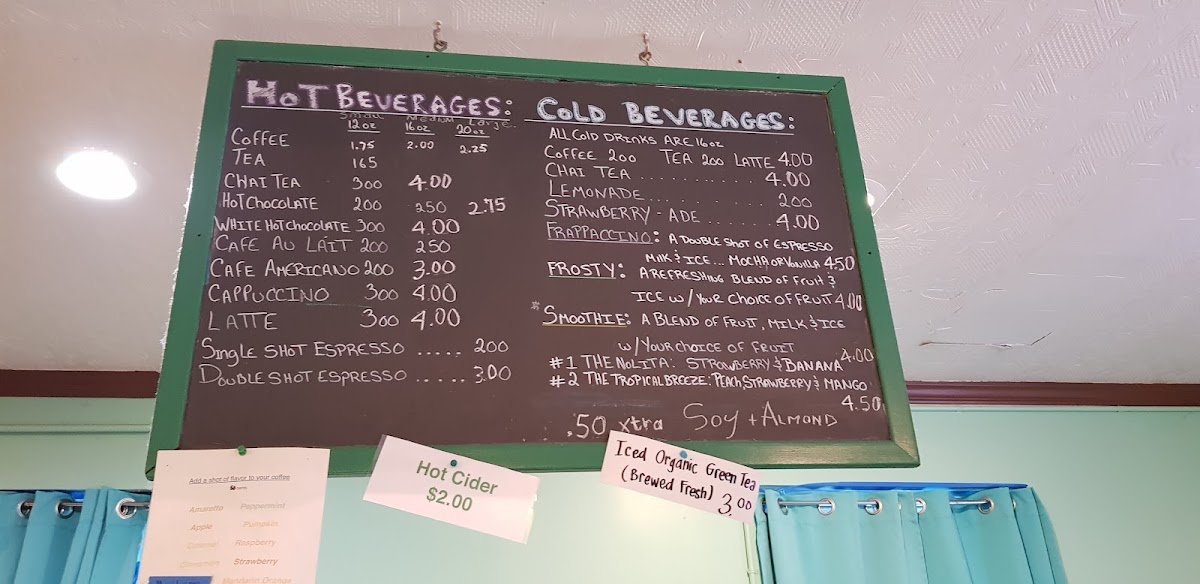 HOT BEVERAGES:
Small Medium Large
12oz 16oz 20oz
COFFEE 1.75 2.00 2.25
TEA 165
CHAI TEA 300 4.00
HOT CHOCOLATE 200 250 2.75
WHITE HOT CHOCOLATE 300 4.00
CAFE AU LAIT 200 250
CAFE AMERICANO 200 3.00
CAPPUCCINO 300 4.00
LATTE 300 4.00
SINGLE SHOT ESPRESSO ..... 200
DOUBLE SHOT ESPRESSO ..... 3.00
COLD BEVERAGES:
ALL COLD DRINKS ARE 16oz
COFFEE 200 TEA 200 LATTE 4.00
CHAI TEA ............ 4.00
LEMONADE ............ 200
STRAWBERRY-ADE ...... 4.00
FRAPPACCINO: A DOUBLE SHOT OF ESPRESSO
MILK & ICE... MOCHA OR VANILLA 4.50
FROSTY: A REFRESHING BLEND OF FRUIT &
ICE W/ YOUR CHOICE OF FRUIT 4.00
*SMOOTHIE: A BLEND OF FRUIT, MILK & ICE
W/ YOUR CHOICE OF FRUIT 4.00
#1 THE NOLITA: STRAWBERRY & BANANA
#2 THE TROPICAL BREEZE: PEACH, STRAWBERRY & MANGO
4.50
.50 xtra SOY + ALMOND
Add a shot of flavor to your coffee
Amaretto Peppermint
Apple Pumpkin
Caramel Raspberry
Cinnamon Strawberry
Mandarin Orange
Hot Cider
$2.00
Iced Organic Green Tea
(Brewed Fresh) 3.00